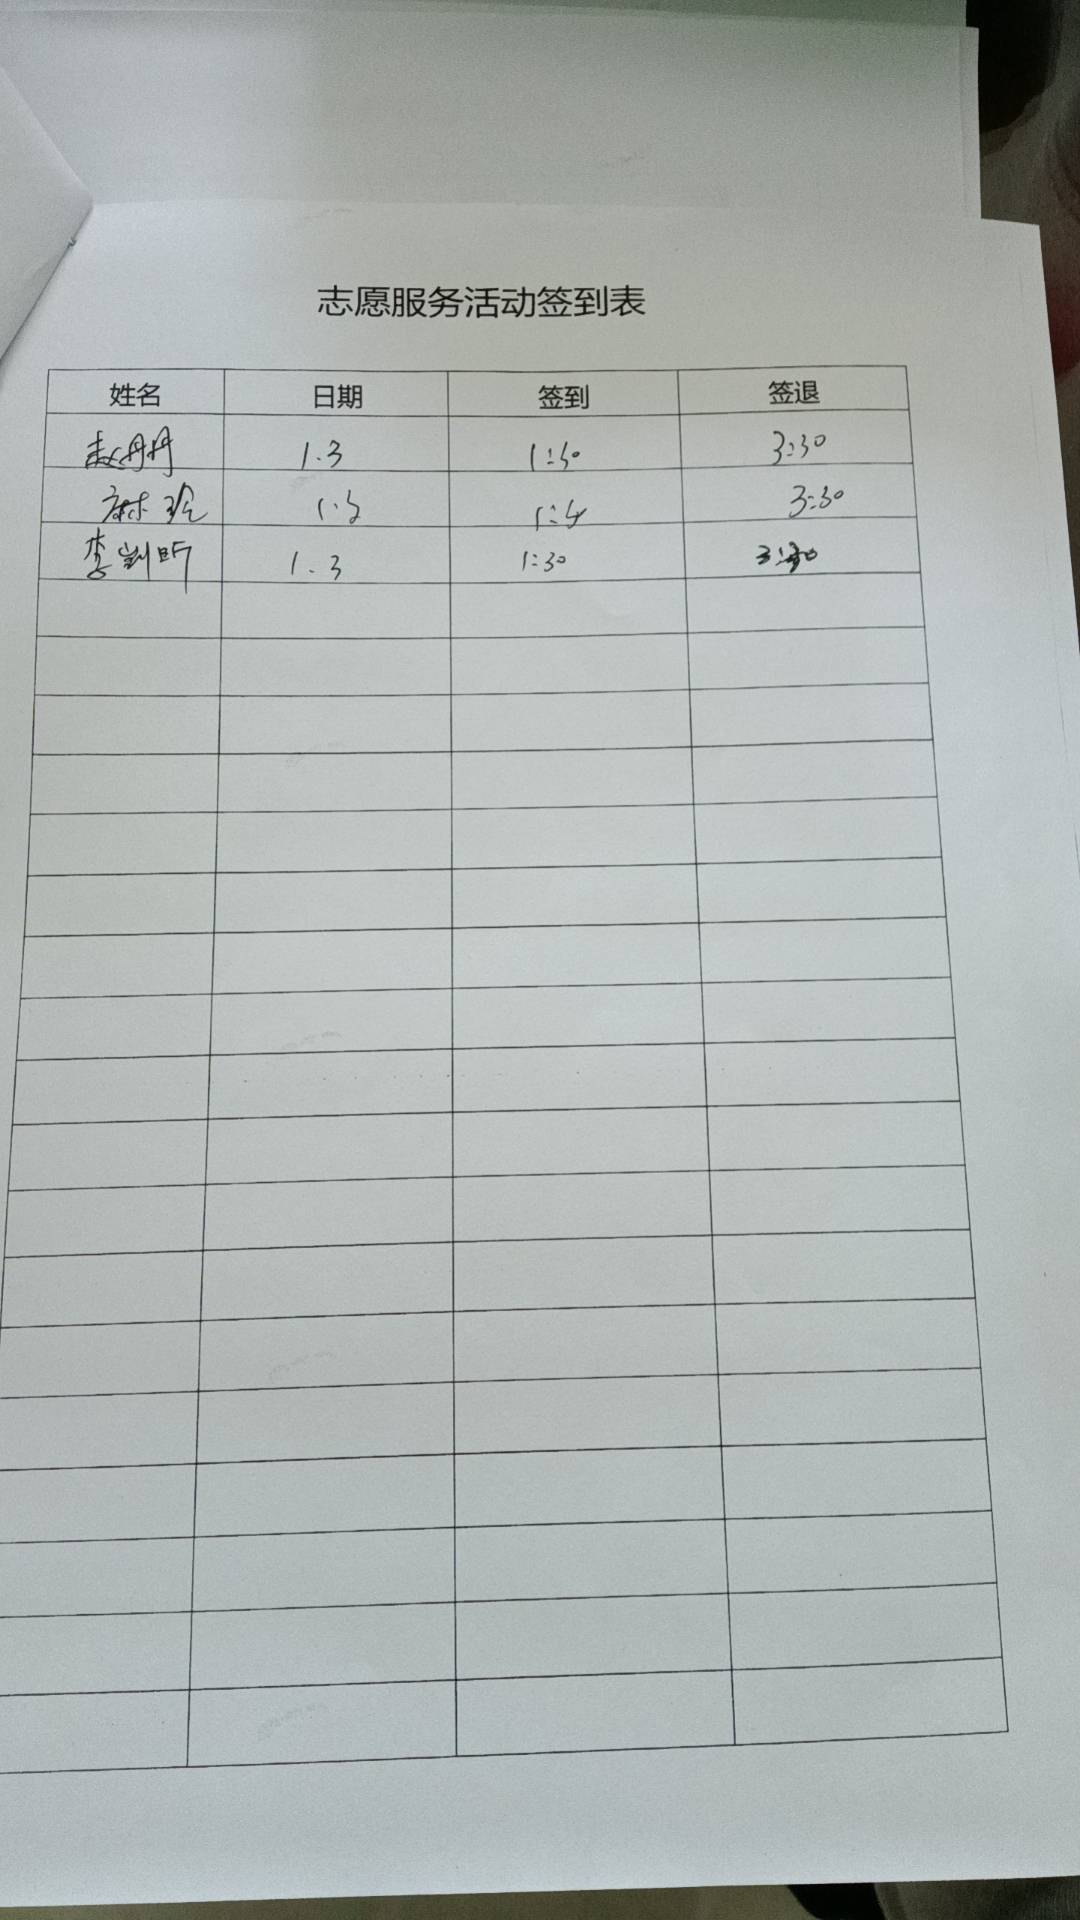 志愿服务活动签到表
姓名 日期 签到 签退
赵丹丹 1.3 1:30 3:30
麻玲 1.3 3:30
李 昕 1.3 1:30 3:30